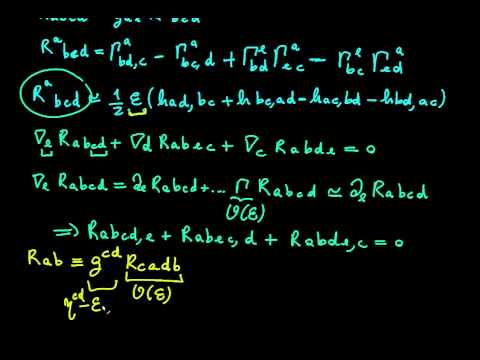 R^a_{bcd} = Γ^a_{bd,c} - Γ^a_{bc,d} + Γ^e_{bd} Γ^a_{ec} - Γ^e_{bc} Γ^a_{ed}
R^a_{bcd} ≃ 1/2 ε (h_{ad,bc} + h_{bc,ad} - h_{ac,bd} - h_{bd,ac})
∇_e R_{abcd} + ∇_d R_{abec} + ∇_c R_{abde} = 0
∇_e R_{abcd} = ∂_e R_{abcd} + ... Γ R_{abcd} ≃ ∂_e R_{abcd}
O(ε)
⇒ R_{abcd,e} + R_{abec,d} + R_{abde,c} = 0
R_{ab} ≡ g^{cd} R_{cadb}
η^{cd} - ε. O(ε)